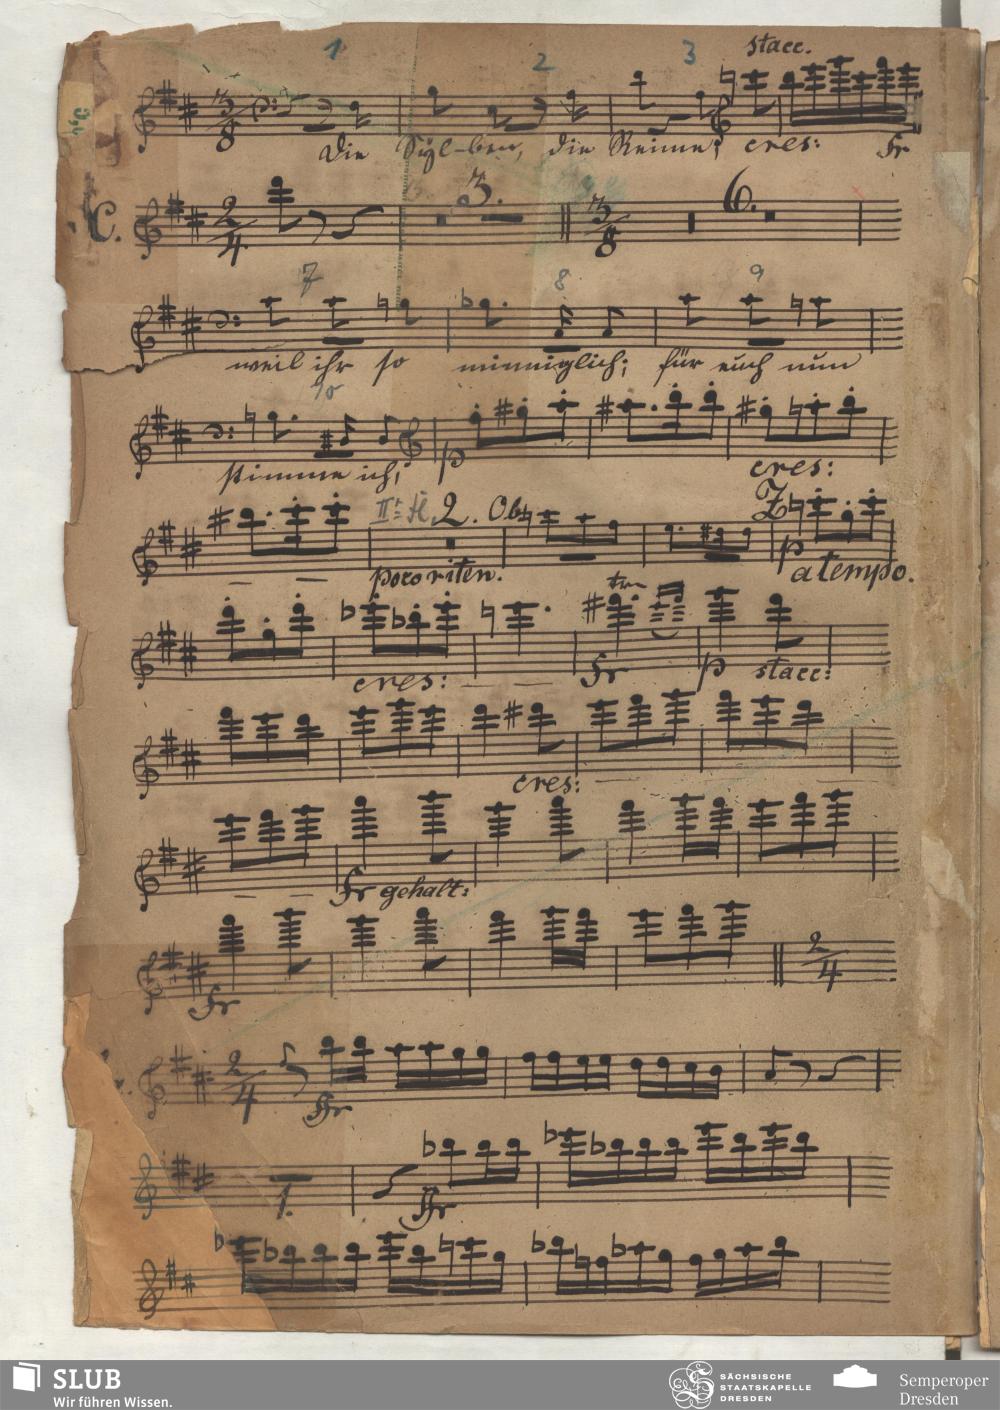 1 2 3 stacc.
3/8
Die Sÿl-ben, die Reime; cres: fr
C. 2/4 3. 3/8 6.
7 8 9
weil ihr so minniglich; für euch nun
10
stimme ich, p cres:
IIte Fl. 2. Ob. Z
poco riten. p a tempo.
tr
cres: fr p stacc:
cres:
fr gehalt:
fr 2/4
2/4 fr
1. fr
SLUB
Wir führen Wissen.
SÄCHSISCHE
STAATSKAPELLE
DRESDEN
Semperoper
Dresden